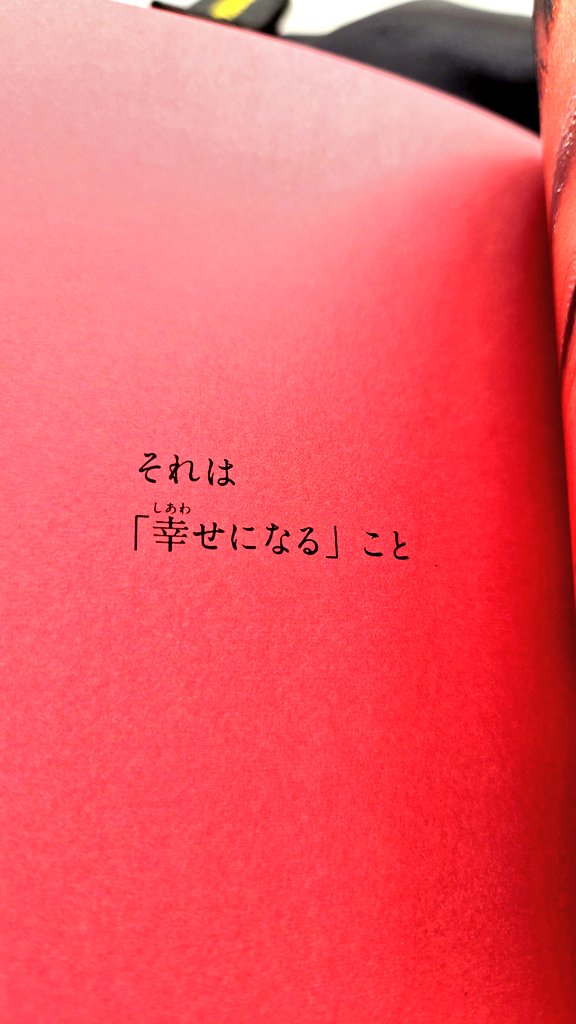 それは
「幸せになる」こと
しあわ